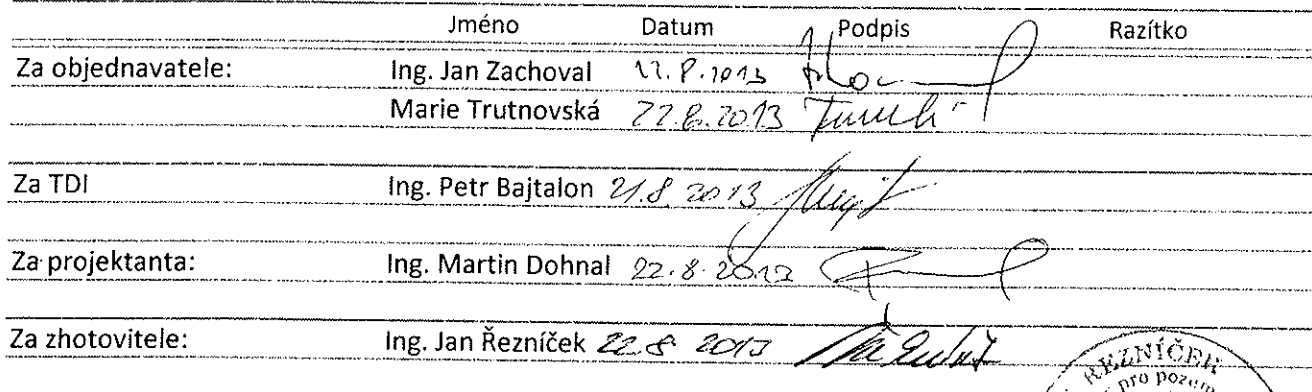 Jméno Datum Podpis Razítko
Za objednavatele: Ing. Jan Zachoval
Marie Trutnovská 22.8.2013
Za TDI Ing. Petr Bajtalon 21.8.2013
Za projektanta: Ing. Martin Dohnal 22.8.2013
Za zhotovitele: Ing. Jan Řezníček 22.8 2013
ŘEZNÍČEK
pro pozem